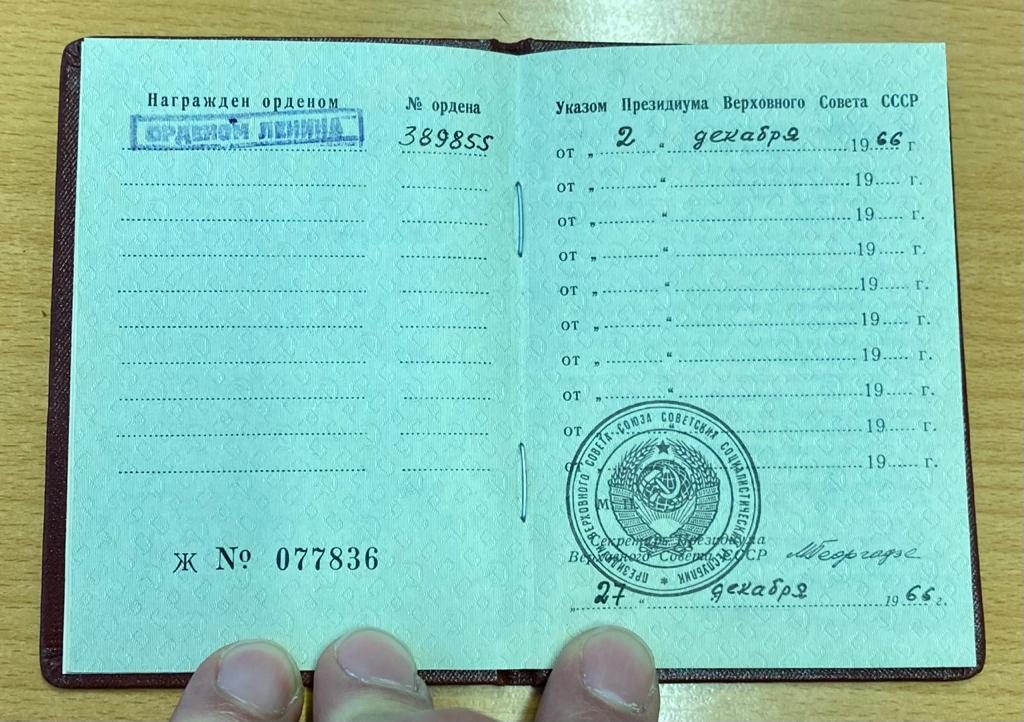 Награжден орденом
ОРДЕНОМ ЛЕНИНА
№ ордена
389855
Ж № 077836
Указом Президиума Верховного Совета СССР
от „ 2 “ декабря 1966 г
от „ “ 19 г.
от „ “ 19 г.
от „ “ 19 г.
от „ “ 19 г.
от „ “ 19 г.
от „ “ 19 г.
от „ “ 19 г.
от „ “ 19 г.
от „ “ 19 г.
ПРЕЗИДИУМ ВЕРХОВНОГО СОВЕТА СОЮЗА СОВЕТСКИХ СОЦИАЛИСТИЧЕСКИХ РЕСПУБЛИК
М. П.
Секретарь Президиума
Верховного Совета СССР МГеоргадзе
„ 27 “ декабря 1966 г.